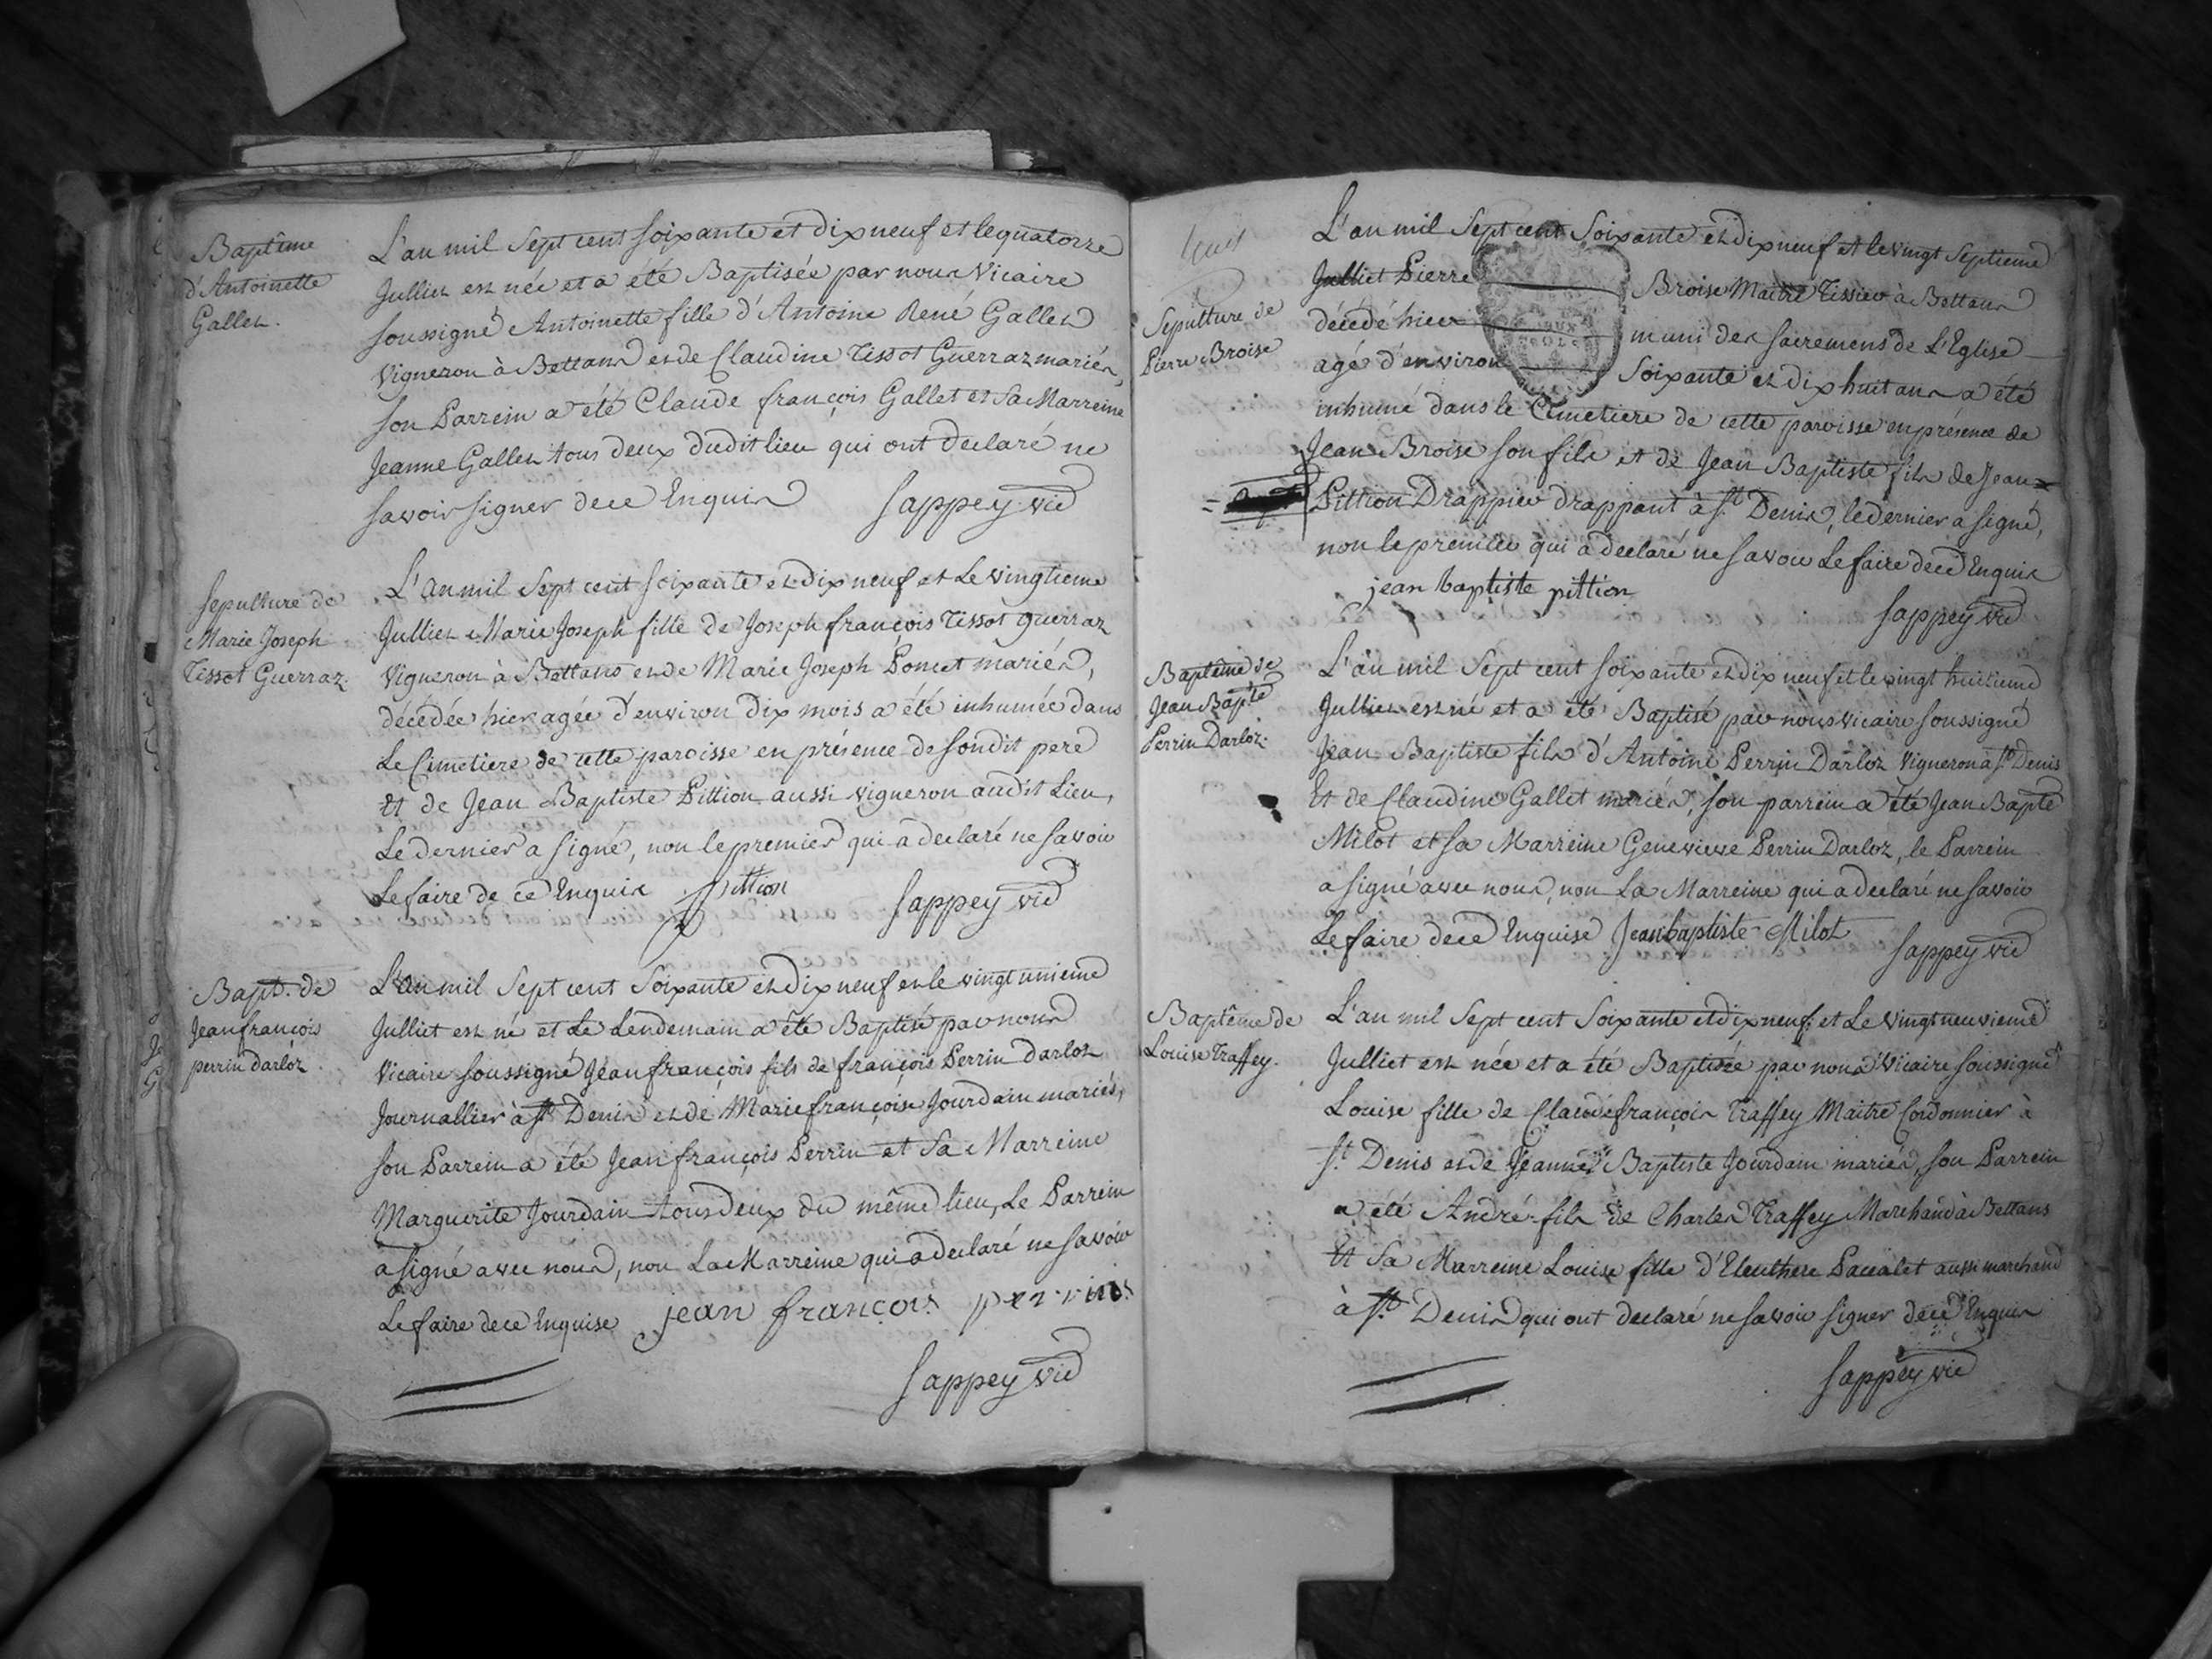 Baptême
d'Antoinette
Gallet.
L'an mil sept cent soixante et dix neuf et le quatorze
Julliet est née et a été Baptisée par nous Vicaire
soussigné Antoinette fille d'Antoine René Gallet
Vigneron à Bettans et de Claudine Tissot Guerraz mariés,
son Parrein a été Claude françois Gallet et sa Marreine
Jeanne Gallet tous deux dudit lieu qui ont declaré ne
savoir signer de ce Enquis Sappey vic
sepulture de
Marie Joseph
Tissot Guerraz.
L'an mil sept cent soixante et dix neuf et le vingtieme
Julliet Marie Joseph fille de Joseph françois Tissot guerraz
Vigneron à Bettans et de Marie Joseph Poncet mariés,
décédée hier agée d'environ dix mois a été inhumée dans
le Cimetiere de cette paroisse en présence de sondit pere
et de Jean Baptiste Pittion aussi vigneron audit lieu,
le dernier a signé, non le premier qui a declaré ne savoir
le faire de ce Enquis Pittion Sappey vic
Bapt. de
Jean françois
perrin darloz
L'an mil sept cent soixante et dix neuf et le vingt unieme
Julliet est né et le lendemain a été Baptisé par nous
Vicaire soussigné Jean françois fils de françois Perrin darloz
Journallier à St Denis et de Marie françoise Jourdain mariés,
son Parrein a été Jean françois Perrin et sa Marreine
Marguerite Jourdain tous deux du même lieu, le Parrein
a signé avec nous, non la Marreine qui a declaré ne savoir
le faire de ce Enquise jean françois perrin
Sappey vic
Sepulture de
Pierre Broise
L'an mil sept cent soixante et dix neuf et le vingt septieme
Julliet Pierre Broise Maitre Tissier à Bettans
décédé hier muni des sacremens de l'Eglise
agé d'environ soixante et dix huit ans a été
inhumé dans le Cimetiere de cette paroisse en présence de
Jean Broise son fils et de Jean Baptiste fils de Jean
Pittion Drappier drappant à St Denis, le dernier a signé,
non le premier qui a declaré ne savoir le faire de ce Enquis
jean baptiste pittion
Sappey vic
Baptême de
Jean Bapte
Perrin Darloz.
L'an mil sept cent soixante et dix neuf et le vingt huitieme
Julliet est né et a été Baptisé par nous vicaire soussigné
Jean Baptiste fils d'Antoine Perrin Darloz Vigneron à St Denis
Et de Claudine Gallet mariés, son parrein a été Jean Bapte
Milot et sa Marreine Genevieve Perrin Darloz, le Parrein
a signé avec nous, non la Marreine qui a declaré ne savoir
le faire de ce Enquise Jean baptiste Milot Sappey vic
Baptême de
Louise Traffey.
L'an mil sept cent soixante et dix neuf et le vingt neuvieme
Julliet est née et a été Baptisée par nous Vicaire soussigné
Louise fille de Claude françois Traffey Maitre Cordonnier à
St Denis et de Jeanne Baptiste Jourdain mariés, son Parrein
a été André fils de Charles Traffey Marchand à Bettans
Et sa Marreine Louise fille d'Eleuthere Pacealet aussi marchand
à St Denis qui ont declaré ne savoir signer de ce Enquis
Sappey vic